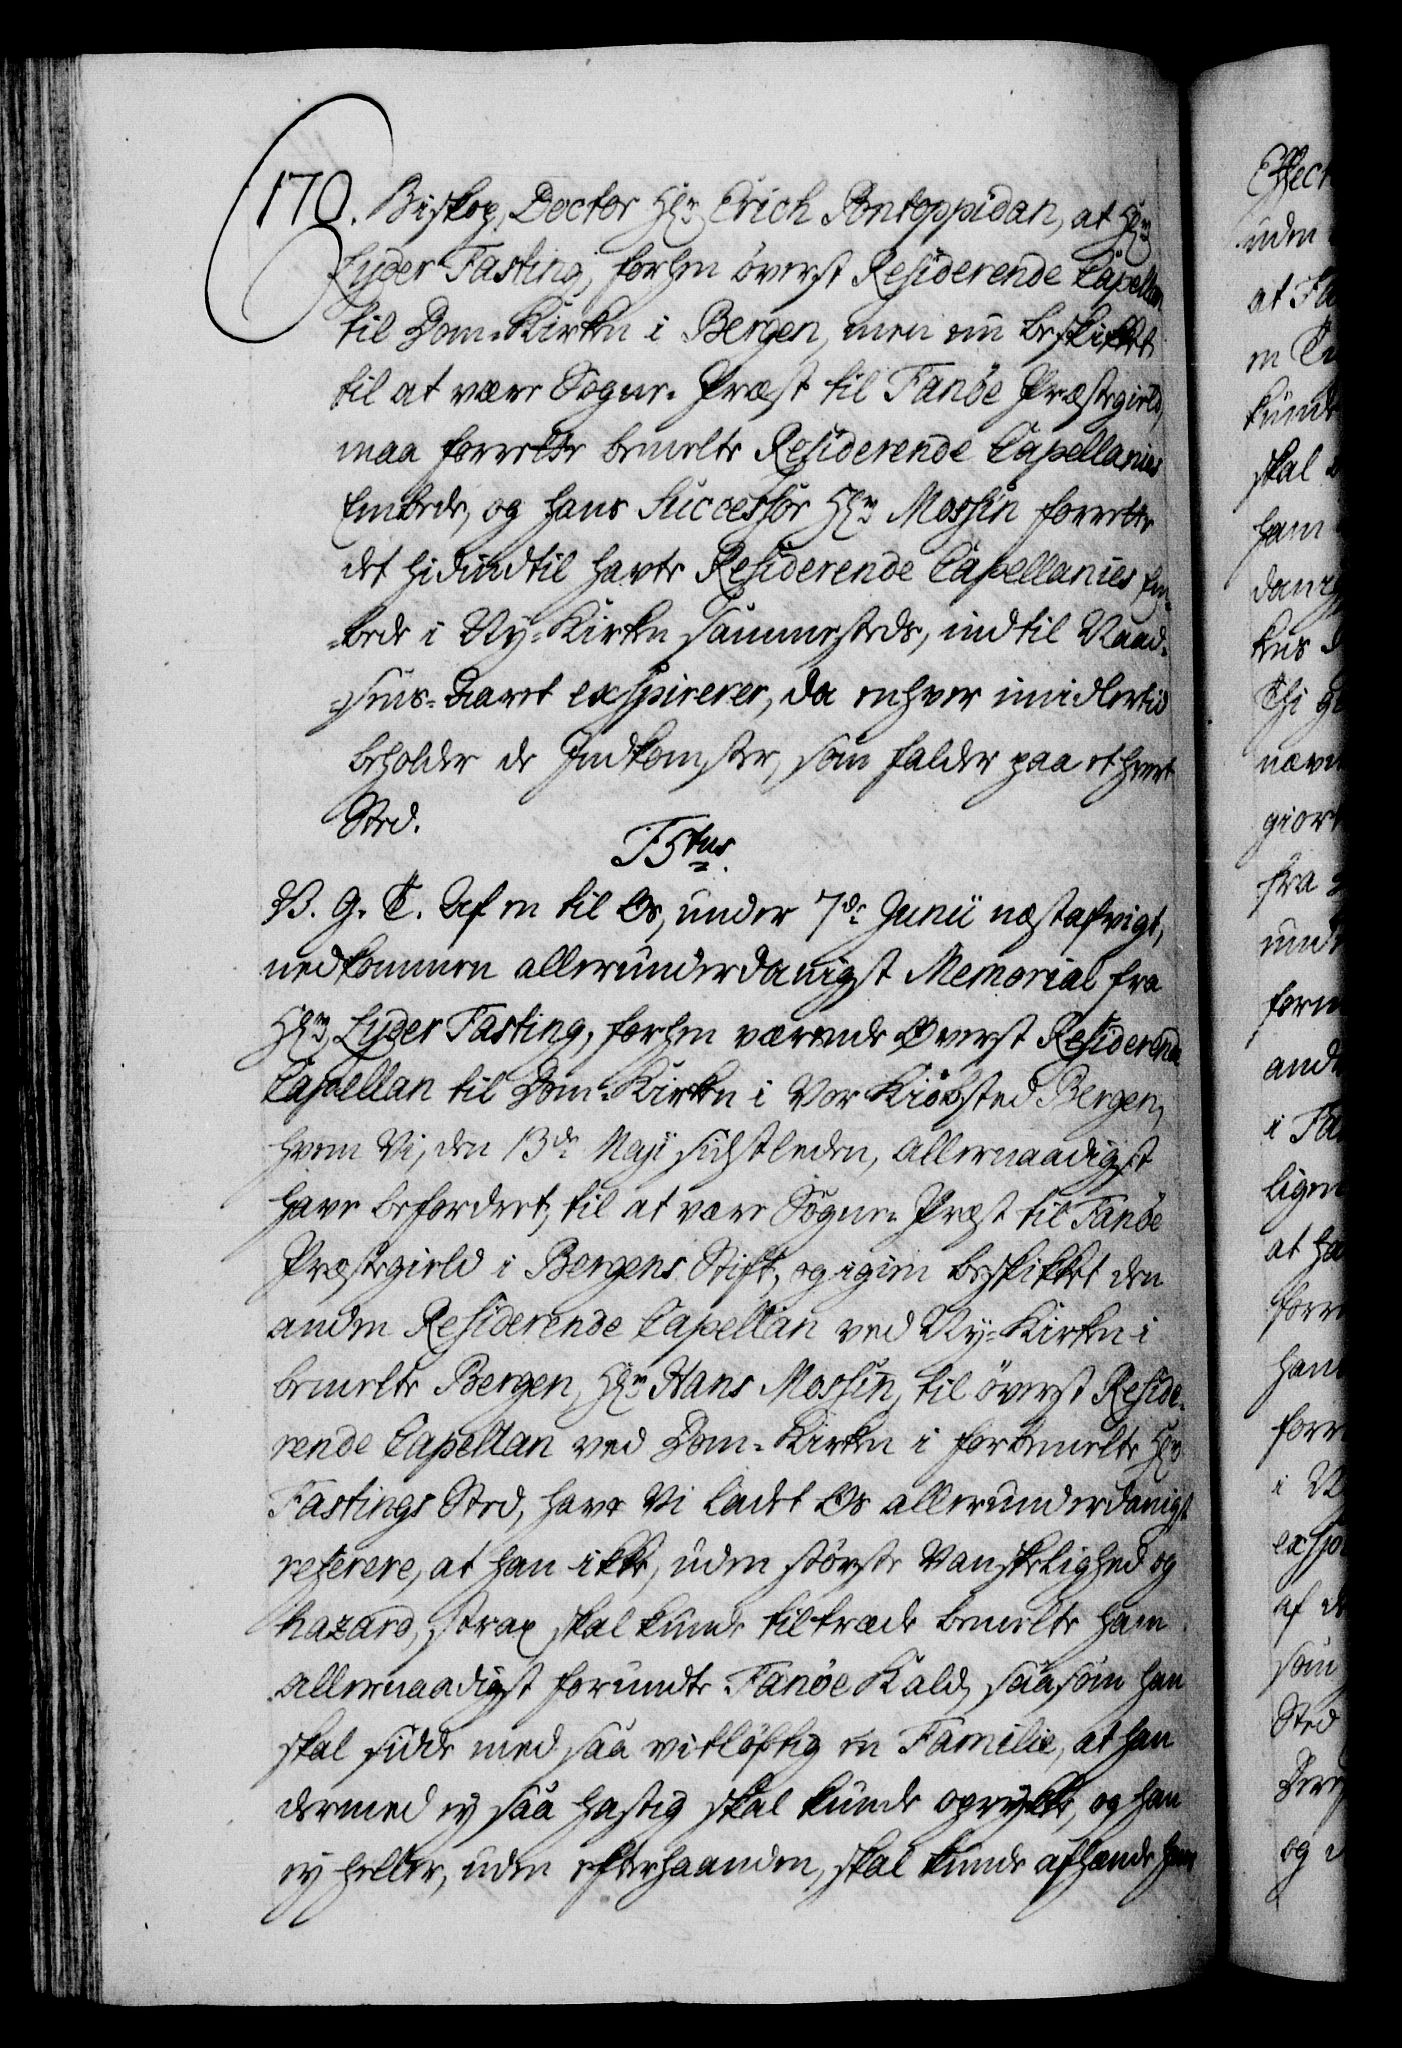 170. Biskop, Doctor Hr. Erich Pontoppidan, at Hr.
Lyder Fasting, forhen överst Residerende Capellan
til Dom-Kirken i Bergen, men nu beskikket
til at være Sogne-Præst til Fanöe Præstegield,
maa forrette bemelte Residerende Capellanies
Embede, og hans Successor Hr. Mossin forrette
det hidindtil havte Residerende Capellanies Em-
-bede i Ny-Kirken sammesteds, indtil Naad-
-sens-Aaret exspirerer, da enhver imidlertid
beholder de Indkomster, som falder paa ethvert
Sted.
F5tus.
V. G. T. Af en til Os, under 7de Junii næstafvigt,
nedkommen allerunderdanigst Memorial fra
Hr. Lyder Fasting, forhen værende Överst Residerende
Capellan til Dom-Kirken i Vor Kiöbsted Bergen,
hvem Vi, den 13de Maji sidstleden, Allernaadigst
have befordret, til at være Sogne-Præst til Fanöe
Præstegield i Bergens Stift, og igien beskikket den
anden Residerende Capellan ved Ny-Kirken i
bemelte Bergen, Hr. Hans Mossin, til överst Reside-
rende Capellan ved Dom-Kirken i forbemelte Hr.
Fastings Sted, have Vi ladet Os allerunderdanigst
referere, at han ikke, uden störste Vanskelighed og
hazard, strax skal kunde tiltræde bemelte ham
Allernaadigst forundte Fanöe Kald, saasom han
skal sidde med saa vitlöftig en Familie, at han
dermed ey saa hastig skal kunde oprykke, og han
ey heller, uden efterhaanden, skal kunde afhænde